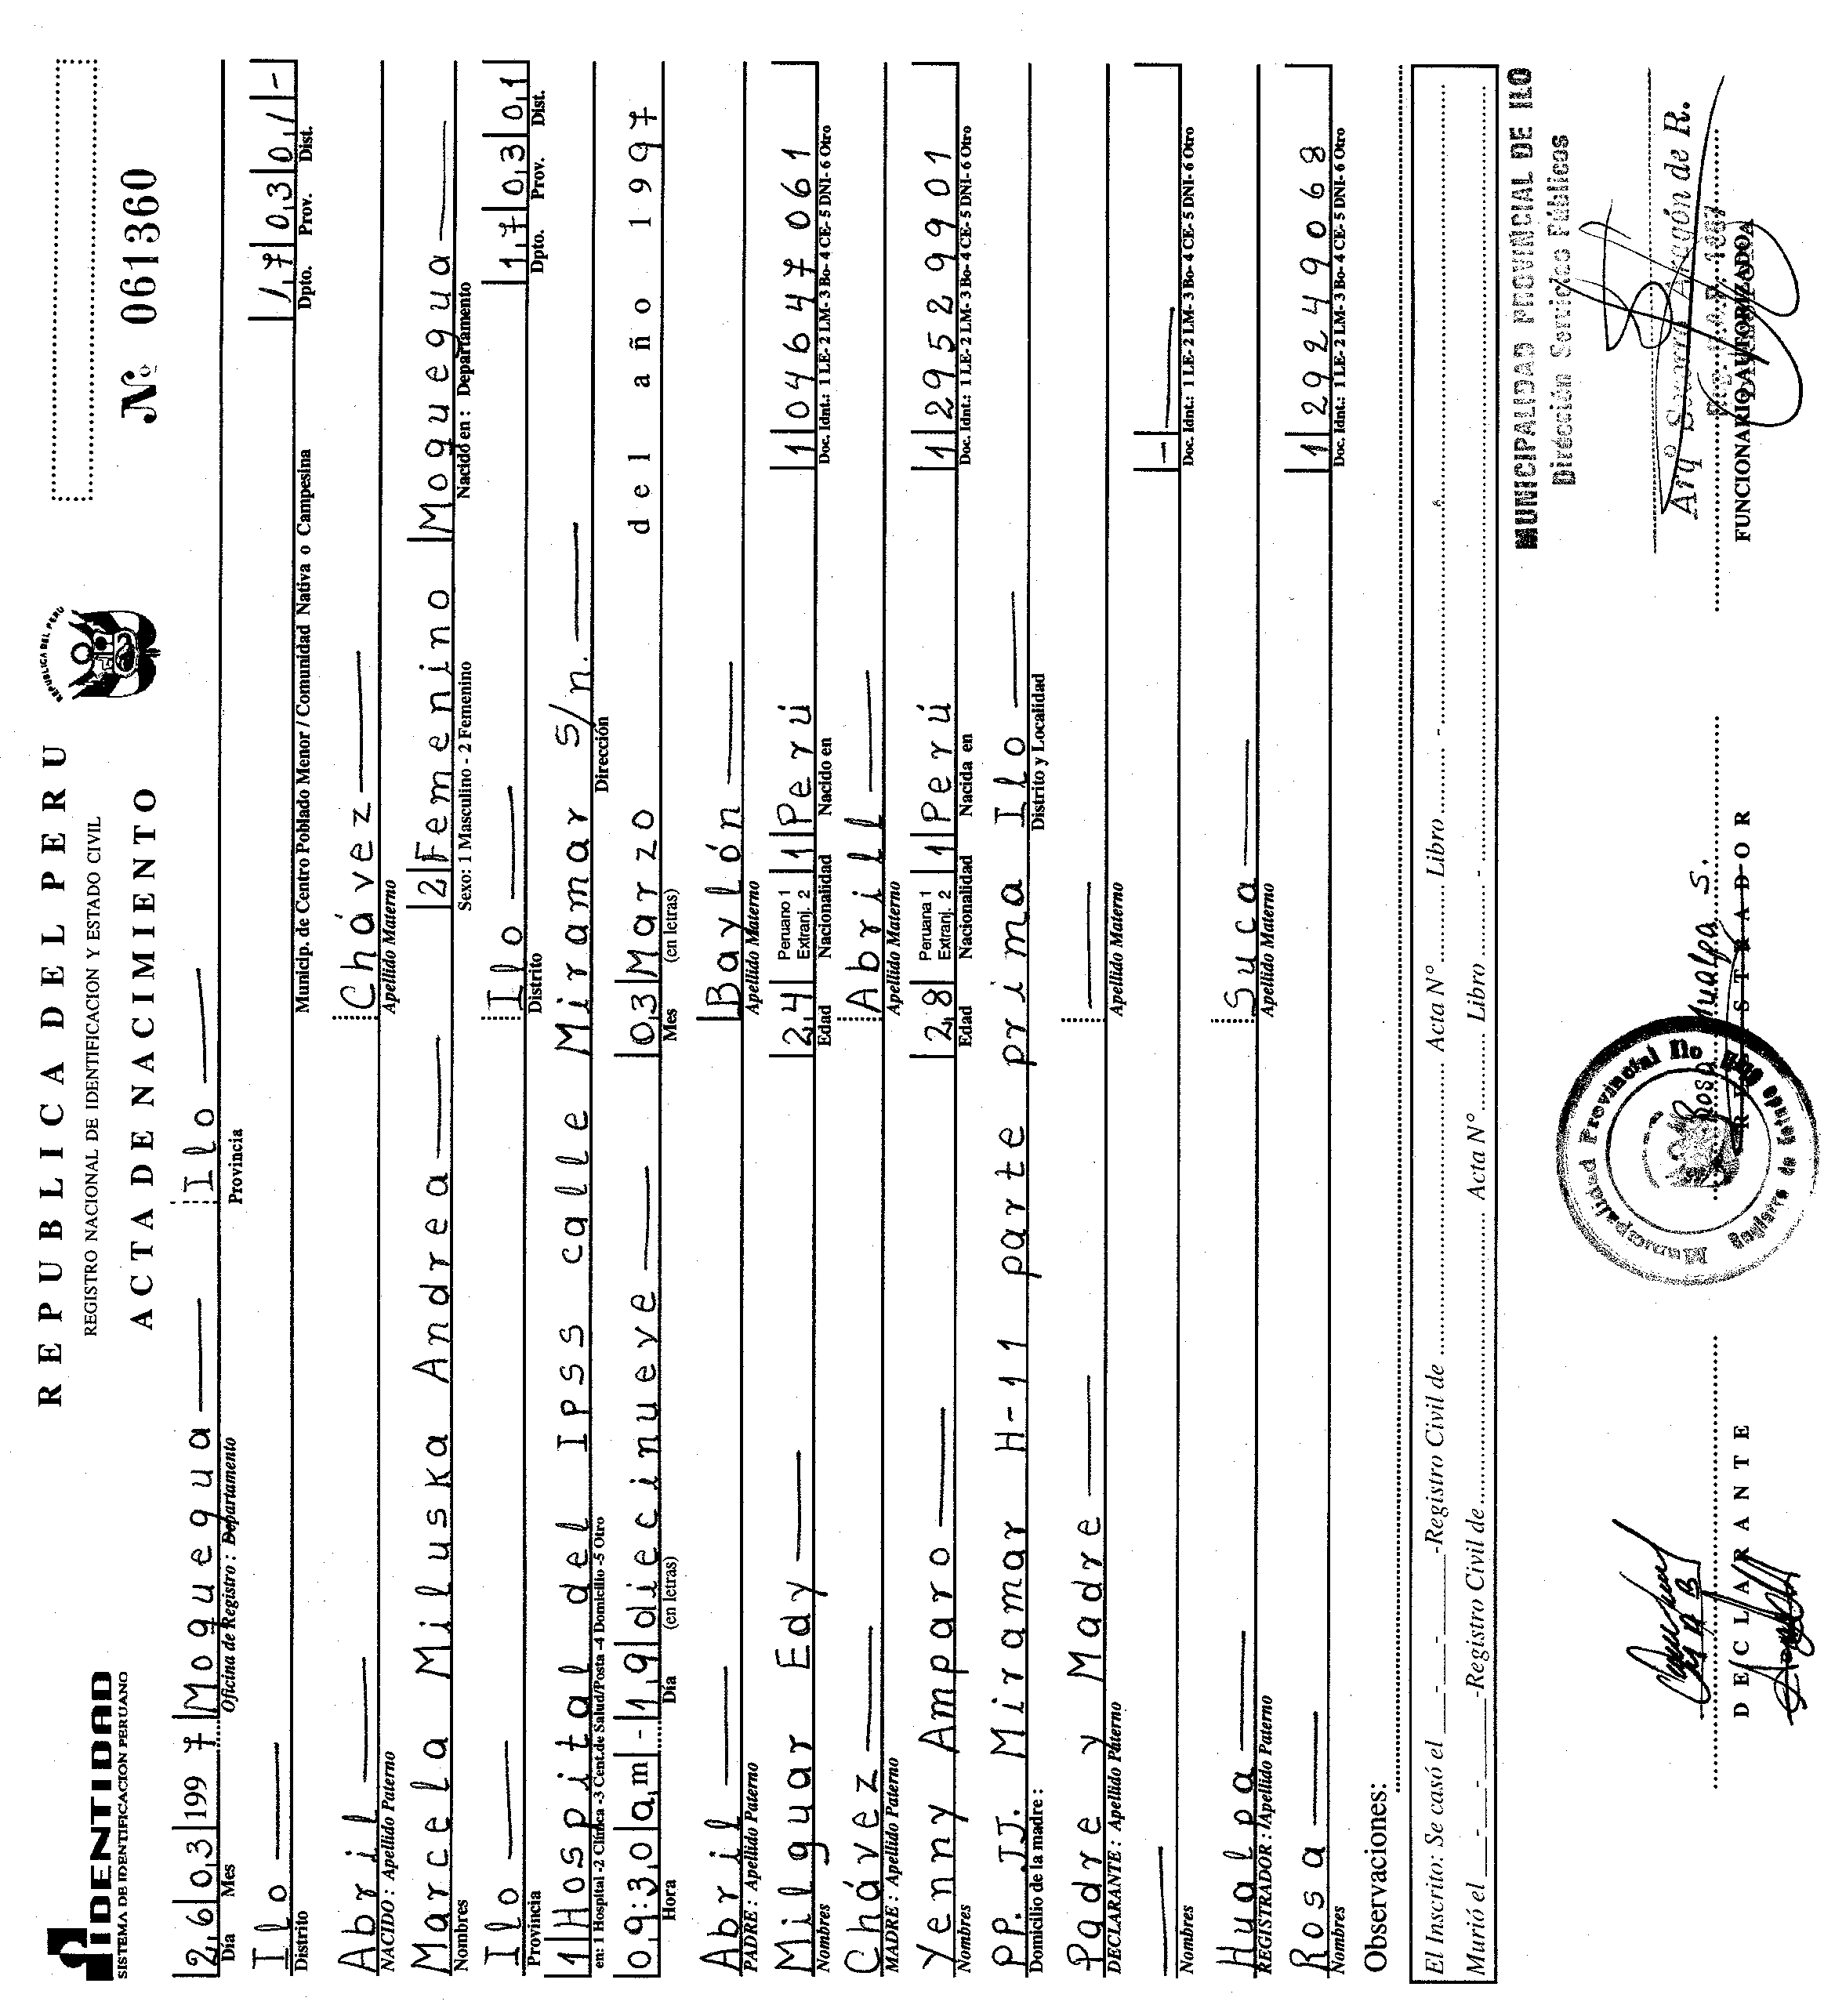 IDENTIDAD
SISTEMA DE IDENTIFICACION PERUANO
REPUBLICA DEL PERU
REGISTRO NACIONAL DE IDENTIFICACION Y ESTADO CIVIL
ACTA DE NACIMIENTO
REPUBLICA DEL PERU
Nº 061360
2,6 0,3 199 7 Moquegua Ilo
Día Mes Oficina de Registro : Departamento Provincia
Ilo 1,7 0,3 0,1 -
Distrito Municip. de Centro Poblado Menor / Comunidad Nativa o Campesina Dpto. Prov. Dist.
Abril Chávez
NACIDO : Apellido Paterno Apellido Materno
Marcela Miluska Andrea 2 Femenino Moquegua
Nombres Sexo: 1 Masculino - 2 Femenino Nacido en : Departamento
Ilo Ilo 1,7 0,3 0,1
Provincia Distrito Dpto. Prov. Dist.
1 Hospital del Ipss calle Miramar s/n.
en: 1 Hospital -2 Clínica -3 Cent.de Salud/Posta -4 Domicilio -5 Otro Dirección
0,9:3,0 a,m - 1,9 diecinueve 0,3 Marzo del año 1997
Hora Día (en letras) Mes (en letras)
Abril Baylón
PADRE : Apellido Paterno Apellido Materno
Milguar Edy 2,4 Peruano 1 Extranj. 2 1 Perú 1 04647061
Nombres Edad Nacionalidad Nacido en Doc. Idnt.: 1 LE- 2 LM- 3 Bo- 4 CE- 5 DNI- 6 Otro
Chávez Abrill
MADRE : Apellido Paterno Apellido Materno
Yenny Amparo 2,8 Peruana 1 Extranj. 2 1 Perú 1 29529901
Nombres Edad Nacionalidad Nacida en Doc. Idnt.: 1 LE- 2 LM- 3 Bo- 4 CE- 5 DNI- 6 Otro
PP. JJ. Miramar H-11 parte prima Ilo
Domicilio de la madre : Distrito y Localidad
Padre y Madre
DECLARANTE : Apellido Paterno Apellido Materno
-
Nombres Doc. Idnt.: 1 LE- 2 LM- 3 Bo- 4 CE- 5 DNI- 6 Otro
Hualpa Suca
REGISTRADOR : Apellido Paterno Apellido Materno
Rosa 1 29249068
Nombres Doc. Idnt.: 1 LE- 2 LM- 3 Bo- 4 CE- 5 DNI- 6 Otro
Observaciones:
El Inscrito: Se casó el - - -Registro Civil de Acta N° Libro -
Murió el - - -Registro Civil de Acta N° Libro -
MUNICIPALIDAD PROVINCIAL DE ILO
Dirección Servicios Públicos
Municipalidad Provincial Ilo
Rosa Hualpa S.
Arqº Socorro Aragón de R.
DECLARANTE REGISTRADOR FUNCIONARIO AUTORIZADO